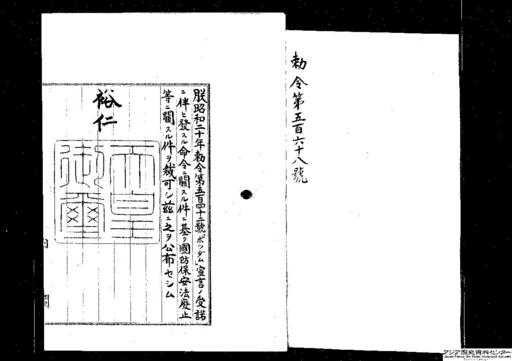 勅令第五百六十八號
朕昭和二十年勅令第五百四十二號「ポツダム」宣言ノ受諾
ニ伴ヒ發スル命令ニ關スル件ニ基ク國防保安法廢止
等ニ關スル件ヲ裁可シ茲ニ之ヲ公布セシム
裕仁
天皇
御璽
内閣
アジア歴史資料センター